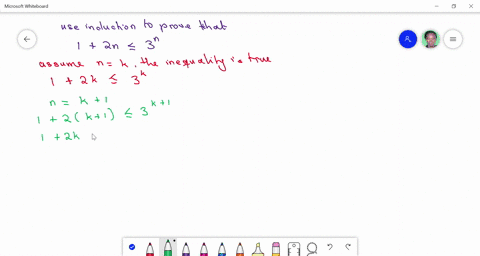 Microsoft Whiteboard
use induction to prove that
1 + 2n ≤ 3ⁿ
assume n = k, the inequality is true
1 + 2k ≤ 3ᵏ
n = k + 1
1 + 2(k+1) ≤ 3ᵏ⁺¹
1 + 2k